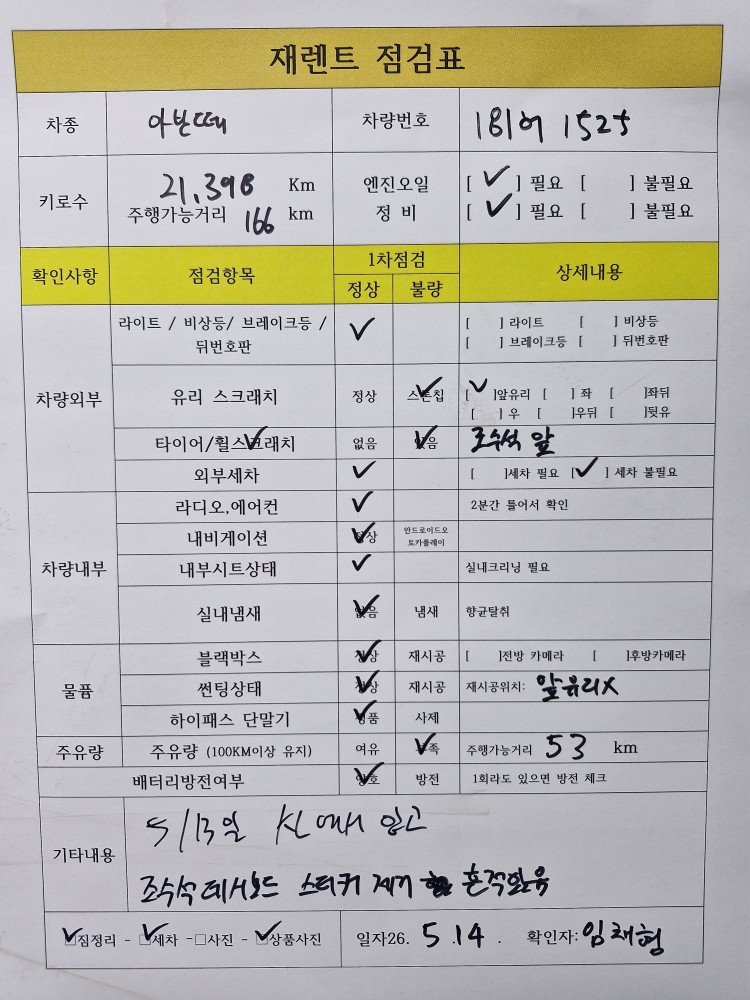 재렌트 점검표
차종 아반떼 차량번호 181어 1525
키로수 21,398 Km 엔진오일 [ ✓ ] 필요 [ ] 불필요
주행가능거리 166 km 정 비 [ ✓ ] 필요 [ ] 불필요
확인사항 점검항목 1차점검 상세내용
정상 불량
차량외부 라이트 / 비상등/ 브레이크등 / ✓ [ ] 라이트 [ ] 비상등
뒤번호판 [ ] 브레이크등 [ ] 뒤번호판
유리 스크래치 정상 스톤칩 ✓ [ ✓ ]앞유리 [ ] 좌 [ ]좌뒤
[ ] 우 [ ]우뒤 [ ]뒷유
타이어/휠스크래치 ✓ 없음 있음 ✓ 조수석 앞
외부세차 ✓ [ ]세차 필요 [ ✓ ] 세차 불필요
차량내부 라디오,에어컨 ✓ 2분간 틀어서 확인
내비게이션 정상 ✓ 안드로이드오
토카플레이
내부시트상태 ✓ 실내크리닝 필요
실내냄새 없음 ✓ 냄새 향균탈취
물품 블랙박스 정상 ✓ 재시공 [ ]전방 카메라 [ ]후방카메라
썬팅상태 정상 ✓ 재시공 재시공위치: 앞유리X
하이패스 단말기 정품 ✓ 사제
주유량 주유량 (100KM이상 유지) 여유 부족 ✓ 주행가능거리 53 km
배터리방전여부 양호 ✓ 방전 1회라도 있으면 방전 체크
기타내용 5/13일 KL에서 입고
조수석 데시보드 스티커 제거 흔적있유
☑짐정리 - ☑세차 -□사진 - ☑상품사진 일자26. 5 .14 . 확인자: 임채형